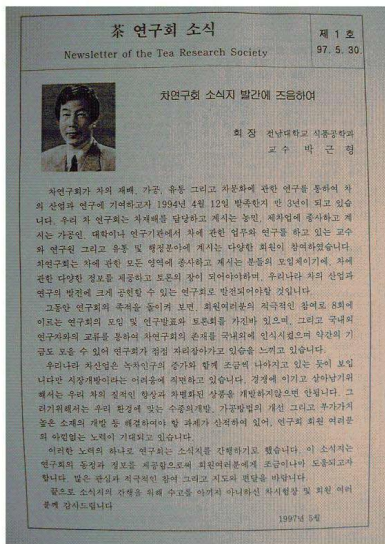 茶 연구회 소식
Newsletter of the Tea Research Society
제 1 호
97. 5. 30.
차연구회 소식지 발간에 즈음하여
회 장 전남대학교 식품공학과
교 수 박 근 형
차연구회가 차의 재배, 가공, 유통 그리고 차문화에 관한 연구를 통하여 차
의 산업과 연구에 기여하고자 1994년 4월 12일 발족한지 만 3년이 되고 있습
니다. 우리 차 연구회는 차재배를 담당하고 계시는 농민, 제차업에 종사하고 계
시는 가공인, 대학이나 연구기관에서 차에 관한 업무와 연구를 하고 있는 교수
와 연구원 그리고 유통 및 행정분야에 계시는 다양한 회원이 참여하였습니다.
차연구회는 차에 관한 모든 영역에 종사하고 계시는 분들의 모임체이기에, 차에
관한 다양한 정보를 제공하고 토론의 장이 되어야하며, 우리나라 차의 산업과
연구의 발전에 크게 공헌할 수 있는 연구회로 발전되어야할 것입니다.
그동안 연구회의 족적을 돌이켜 보면, 회원여러분의 적극적인 참여로 8회에
이르는 연구회의 모임 및 연구발표와 토론회를 가진바 있으며, 그리고 국내외
연구자와의 교류를 통하여 차연구회의 존재를 국내외에 인식시켰으며 약간의 기
금도 모을 수 있어 연구회가 점점 자리잡아가고 있음을 느끼고 있습니다.
우리나라 차산업은 녹차인구의 증가와 함께 조금씩 나아지고 있는 듯이 보입
니다만 시장개방이라는 어려움에 직면하고 있습니다. 경쟁에 이기고 살아남기위
해서는 우리 차의 질적인 향상과 차별화된 상품을 개발하지않으면 안됩니다. 그
러기위해서는 우리 환경에 맞는 수종의개발, 가공방법의 개선 그리고 부가가치
높은 소재의 개발 등 해결하여야 할 과제가 산적하여 있어, 연구회 회원 여러분
의 아낌없는 노력이 기대되고 있습니다.
이러한 노력의 하나로 연구회는 소식지를 간행하기로 했습니다. 이 소식지는
연구회의 동정과 정보를 제공함으로써 회원여러분에게 조금이나마 도움되고자
합니다. 많은 관심과 적극적인 참여 그리고 지도와 편달을 바랍니다.
끝으로 소식지의 간행을 위해 수고를 아끼지 아니하신 차시험장 및 회원 여러
분께 감사드립니다
1997년 5월